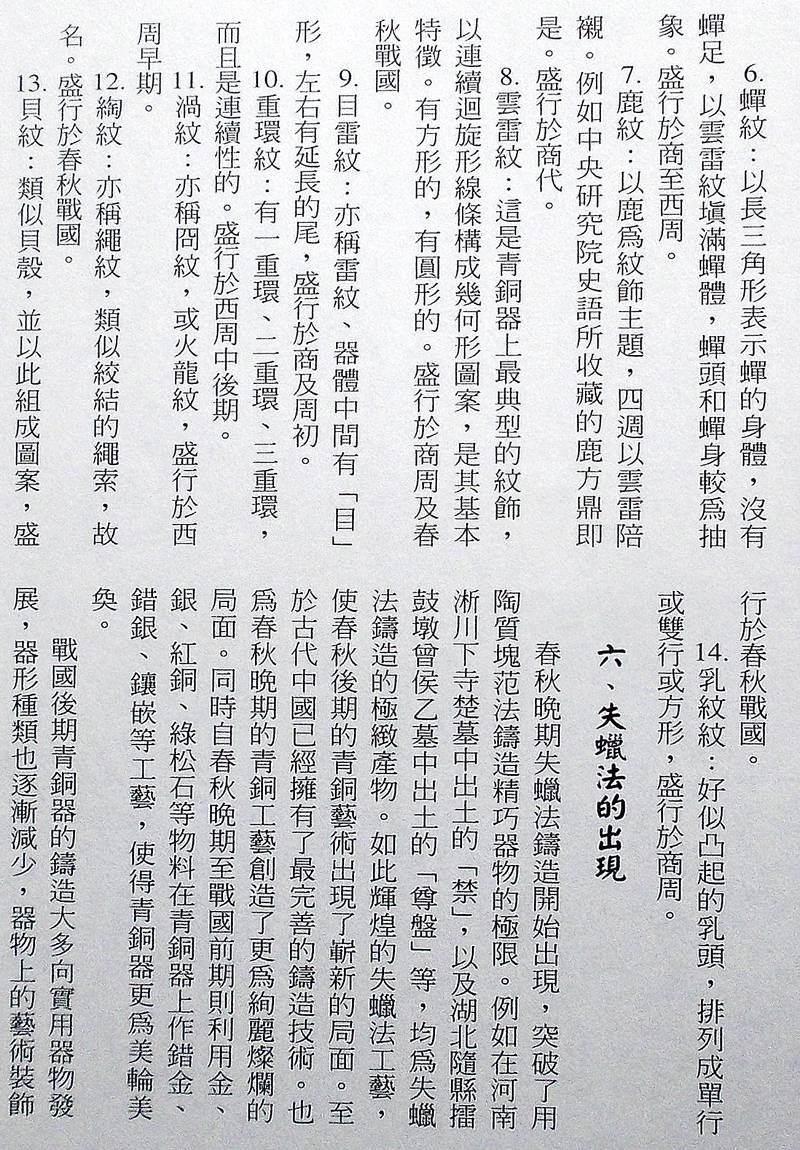 6.蟬紋：以長三角形表示蟬的身體，沒有
蟬足，以雲雷紋塡滿蟬體，蟬頭和蟬身較爲抽
象。盛行於商至西周。
7.鹿紋：以鹿爲紋飾主題，四週以雲雷陪
襯。例如中央研究院史語所收藏的鹿方鼎即
是。盛行於商代。
8.雲雷紋：這是青銅器上最典型的紋飾，
以連續迴旋形線條構成幾何形圖案，是其基本
特徵。有方形的，有圓形的。盛行於商周及春
秋戰國。
9.目雷紋：亦稱雷紋、器體中間有「目」
形，左右有延長的尾，盛行於商及周初。
10.重環紋：有一重環、二重環、三重環，
而且是連續性的。盛行於西周中後期。
11.渦紋：亦稱冏紋，或火龍紋，盛行於西
周早期。
12.綯紋：亦稱繩紋，類似絞結的繩索，故
名。盛行於春秋戰國。
13.貝紋：類似貝殼，並以此組成圖案，盛
行於春秋戰國。
14.乳紋紋：好似凸起的乳頭，排列成單行
或雙行或方形，盛行於商周。
六、失蠟法的出現
春秋晚期失蠟法鑄造開始出現，突破了用
陶質塊范法鑄造精巧器物的極限。例如在河南
淅川下寺楚墓中出土的「禁」，以及湖北隨縣擂
鼓墩曾侯乙墓中出土的「尊盤」等，均爲失蠟
法鑄造的極緻產物。如此輝煌的失蠟法工藝，
使春秋後期的青銅藝術出現了嶄新的局面。至
於古代中國已經擁有了最完善的鑄造技術。也
爲春秋晚期的青銅工藝創造了更爲絢麗燦爛的
局面。同時自春秋晚期至戰國前期則利用金、
銀、紅銅、綠松石等物料在青銅器上作錯金、
錯銀、鑲嵌等工藝，使得青銅器更爲美輪美
奐。
戰國後期青銅器的鑄造大多向實用器物發
展，器形種類也逐漸減少，器物上的藝術裝飾